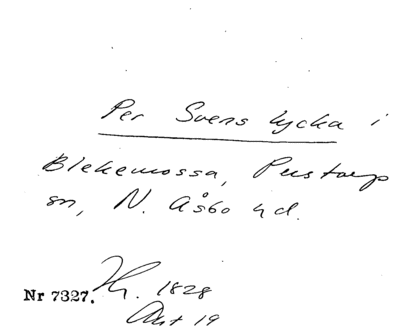 Per Svens lycka i
Blekemossa, Perstorp
sn, N. Åsbo hd.
Nr 7327. Hy. 1828
Akt 19